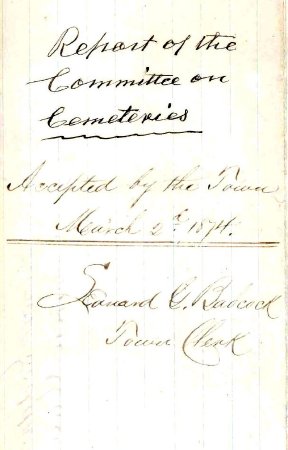 Report of the
Committee on
Cemeteries
Accepted by the Town
March 2d. 1874.
Edward C. Babcock
Town Clerk